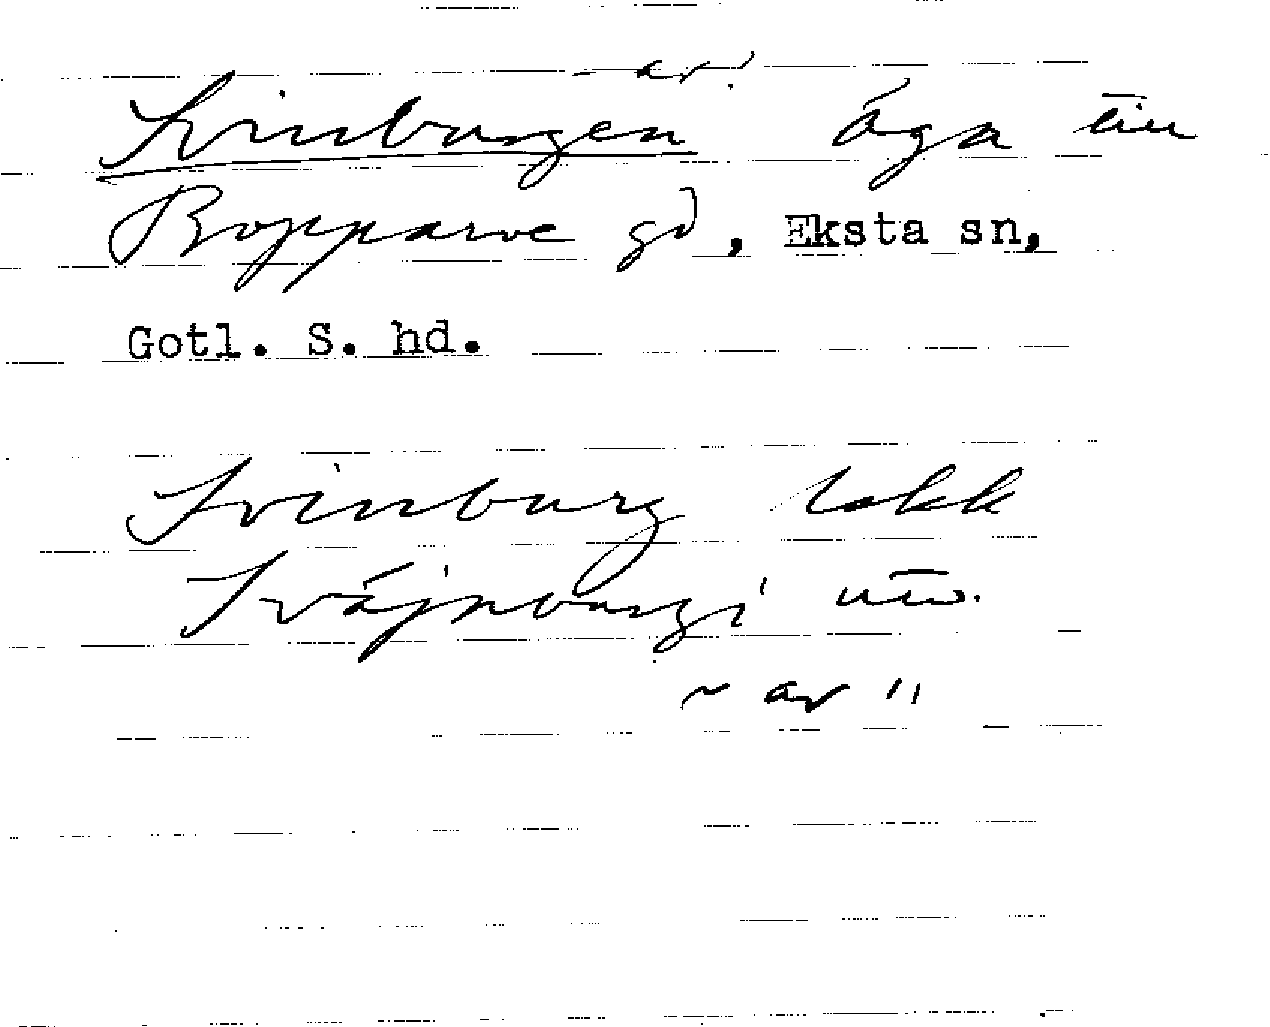 - ar
Svinburgen åga till
Bopparve gd, Eksta sn,
Gotl. S. hd.
Svinburg lokk
Svájnburgi utt.
~ ar "